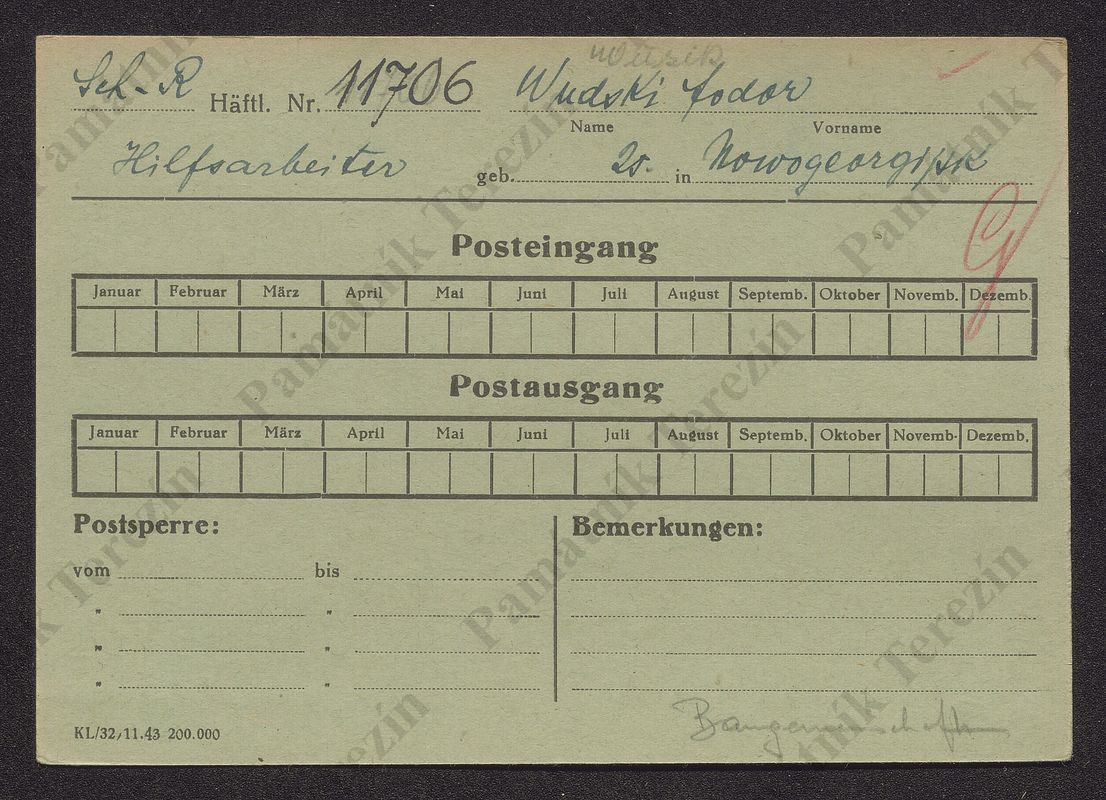 Sch-R Häftl. Nr. 11706 Wudski Fodor
Name Vorname
Hilfsarbeiter geb. 20. in Nowogeorgijsk
Posteingang
Januar Februar März April Mai Juni Juli August Septemb. Oktober Novemb. Dezemb.
Postausgang
Januar Februar März April Mai Juni Juli August Septemb. Oktober Novemb. Dezemb.
Postsperre: Bemerkungen:
vom bis
" "
" "
" "
KL/32/11.43 200.000
Památník Terezín